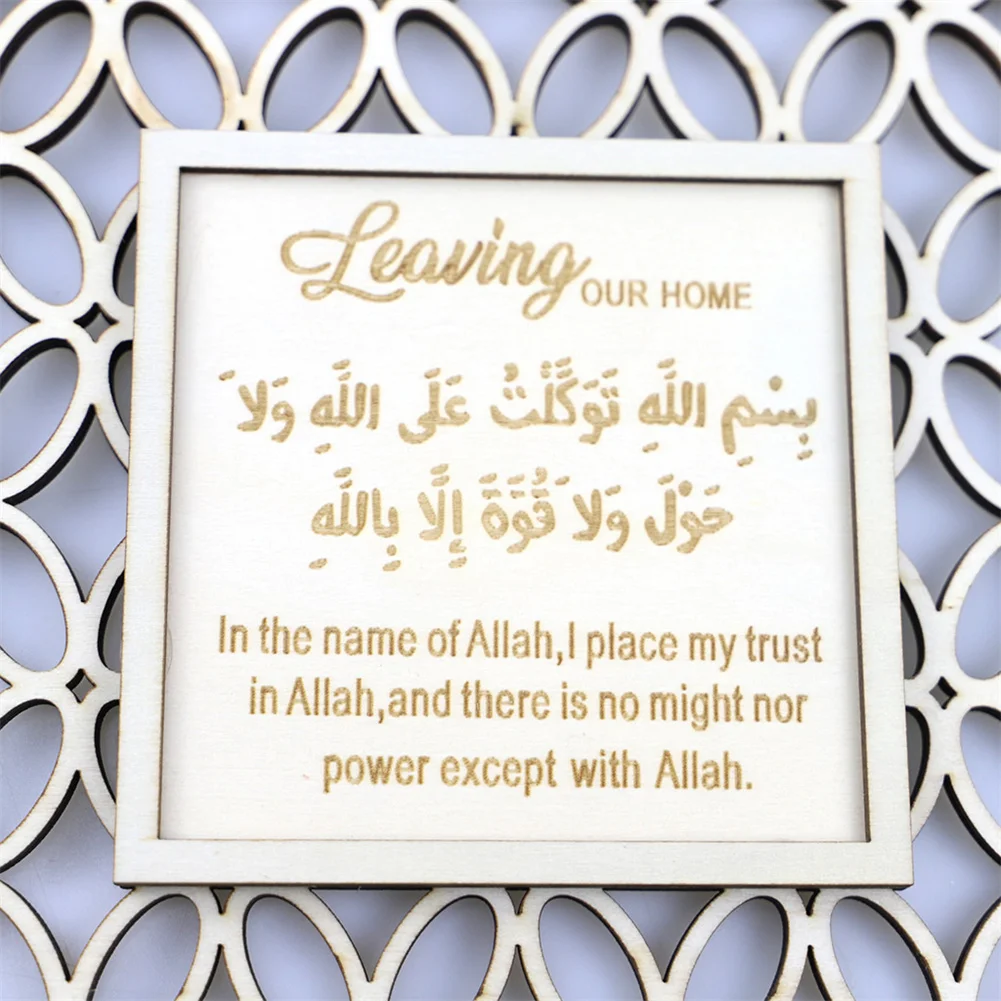 Leaving OUR HOME
بِسْمِ اللَّهِ تَوَكَّلْتُ عَلَى اللَّهِ وَلَا
حَوْلَ وَلَا قُوَّةَ إِلَّا بِاللَّهِ
In the name of Allah,I place my trust
in Allah,and there is no might nor
power except with Allah.